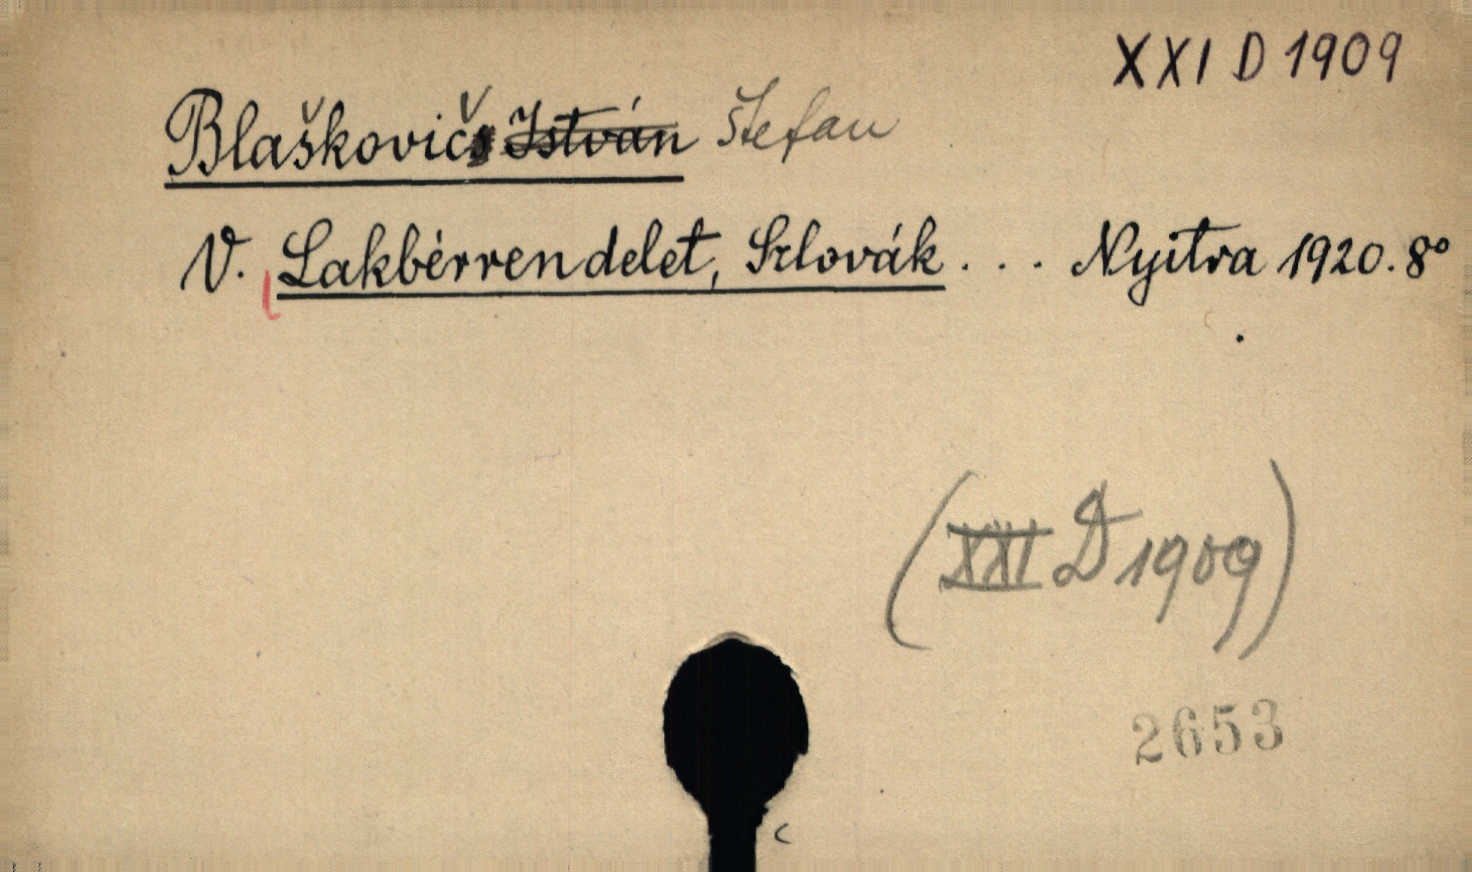 XXI D 1909
Blaškovič István Štefan
V. Lakbérrendelet, Szlovák . . . Nyitra 1920. 8°
(XXI D 1909)
2653